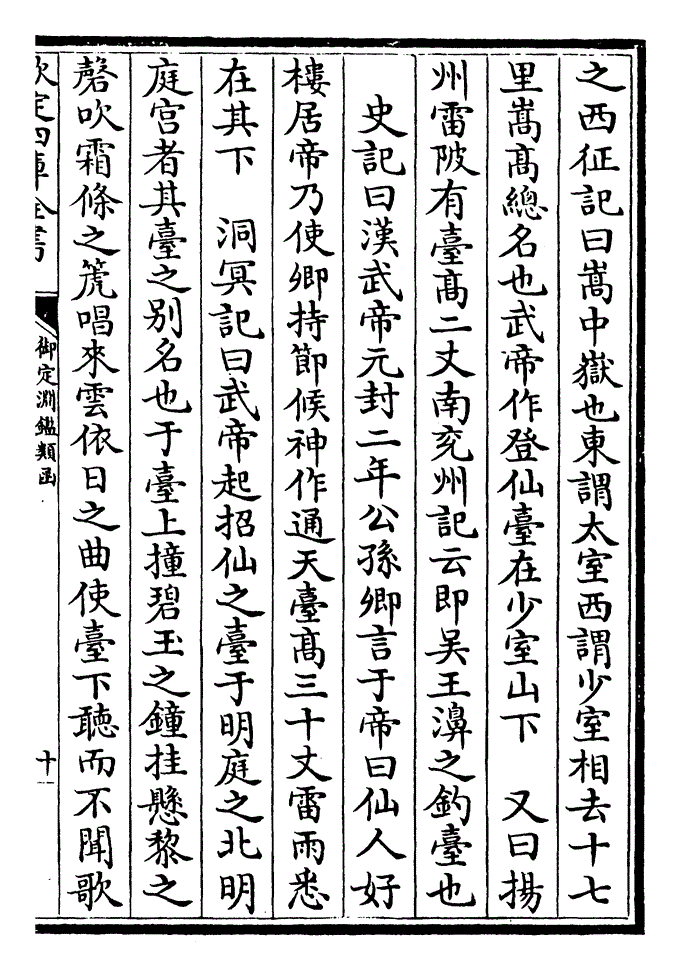 之西征記曰嵩中嶽也東謂太室西謂少室相去十七
里嵩髙總名也武帝作登仙臺在少室山下　又曰揚
州雷陂有臺髙二丈南兖州記云即吴王濞之釣臺也
史記曰漢武帝元封二年公孫卿言于帝曰仙人好
樓居帝乃使卿持節候神作通天臺髙三十丈雷雨悉
在其下　洞冥記曰武帝起招仙之臺于明庭之北明
庭宫者其臺之别名也于臺上撞碧玉之鐘挂懸黎之
磬吹霜條之篪唱來雲依日之曲使臺下聽而不聞歌
欽定四庫全書
御定淵鑑類函
十